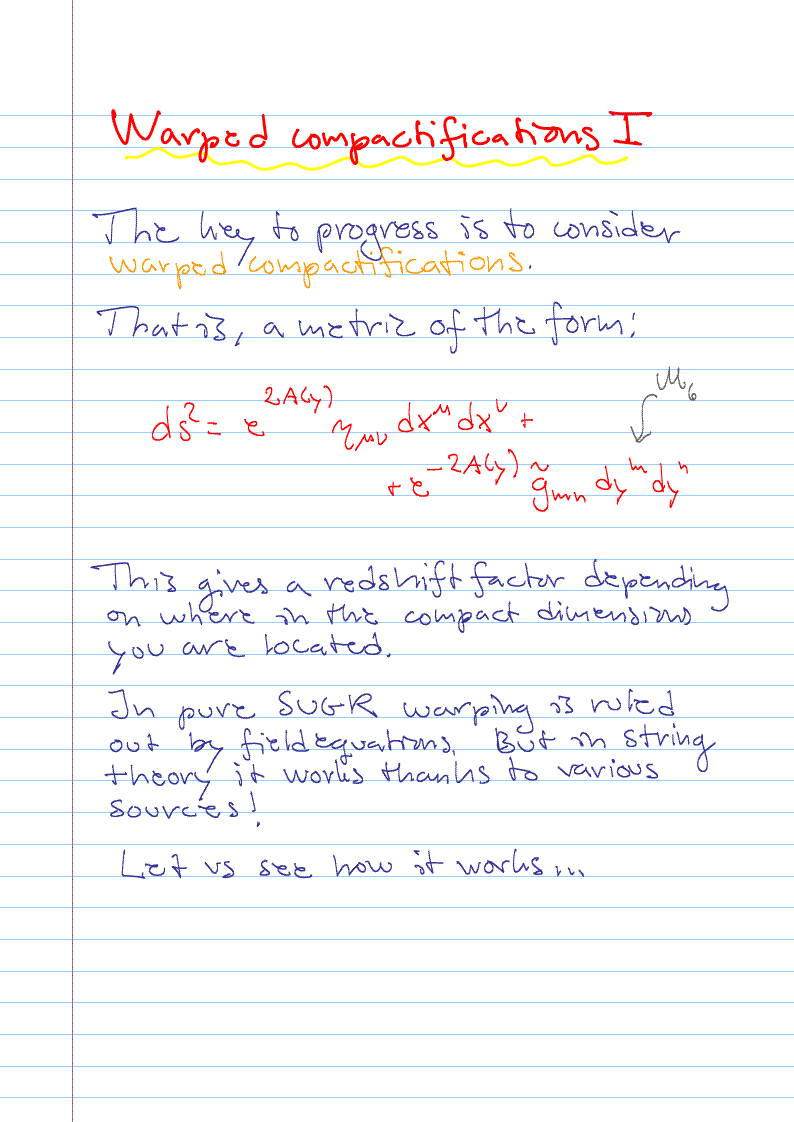 Warped compactifications I
The key to progress is to consider
warped compactifications.
That is, a metric of the form:
M₆
ds² = e^{2A(y)} η_{μν} dx^μ dx^ν +
+ e^{-2A(y)} g̃_{mn} dy^m dy^n
This gives a redshift factor depending
on where in the compact dimensions
you are located.
In pure SUGR warping is ruled
out by field equations. But in string
theory it works thanks to various
sources!
Let us see how it works...